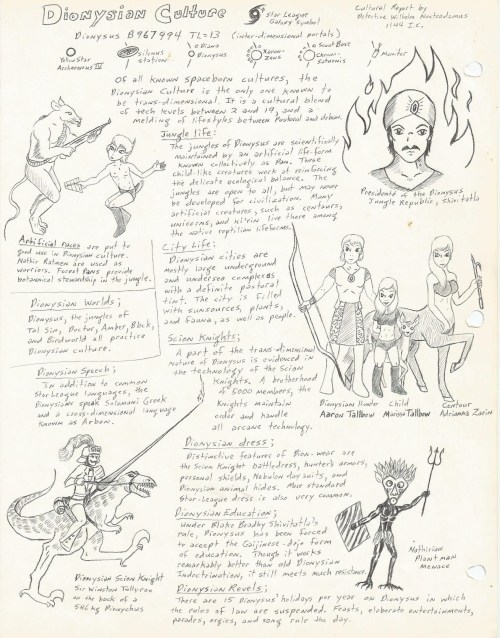 Dionysian Culture
Star League
Galaxy Symbol
Cultural Report by
Detective Wilhelm
1144 I.C.
Dionysus B967994 TL=13 (inter-dimensional portals)
Yellow Star
Silenus
Station
Diana
Dionysus
Zeus
Scout Base
Monitor
Of all known spaceborn cultures, the
Dionysian Culture is the only one known to
be trans-dimensional. It is a cultural blend
of tech levels between 2 and 19, and a
melding of lifestyles between Pastoral and urban.
Jungle life:
The jungles of Dionysus are scientifically
maintained by an artificial life-form
known collectively as Pan. These
child-like creatures work at reinforcing
the delicate ecological balance. The
jungles are open to all, but may never
be developed for civilization. Many
artificial creatures, such as centaurs,
unicorns, and ki'rin live there among
the native reptilian lifeforms.
Presidente of the Dionysus
Jungle Republic, Shivitatla
Artificial races are put to
good use in Dionysian culture.
Nathir Ratmen are used as
warriors. Forest fans provide
botanical stewardship in the jungle.
City Life:
Dionysian cities are
mostly large underground
and undersea complexes
with a definite pastoral
tint. The city is filled
with sunsources, plants,
and fauna, as well as people.
Dionysian Worlds:
Dionysus, the jungles of
Tal Sin, Doctor, Amber, Block,
and Birdworld all practice
Dionysian culture.
Scion Knights:
A part of the trans-dimensional
nature of Dionysus is evidenced in
the technology of the Scion
Knights. A brotherhood
of 5000 members, the
Knights maintain
order and handle
all arcane technology.
Dionysian Hunter
Aaron Tallbow
Child
Marissa Tallbow
Centaur
Adrianna Zarin
Dionysian Speech:
In addition to common
Star League languages, the
Dionysians speak Solomani Greek
and a cross-dimensional language
known as Arbon.
Dionysian dress:
Distinctive features of Dion-wear are
the Scion Knight battledress, hunter's armors,
personal shields, Nebulon day suits, and
Dionysian animal hides. More standard
Star-League dress is also very common.
Dionysian Education:
Under Blake Bradby Shivitatla's
rule, Dionysus has been forced
to accept the Gaijinese-dojo form
of education. Though it works
remarkably better than old Dionysian
Indoctrination, it still meets much resistance.
Nathirian
Plantman
Menace
Dionysian Scion Knight
Sir Winston Tallyron
on the back of a
Dionysian Revels:
There are 15 Dionysus' holidays per year on Dionysus in which
the rules of law are suspended. Feasts, elaborate entertainments,
parades, orgies, and song rule the day.